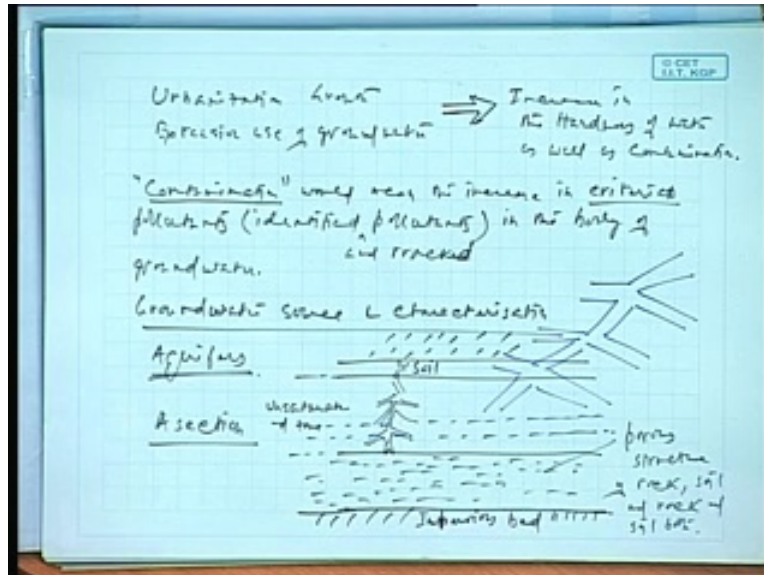 © CET
I.I.T. KGP
Urbanization Growth
Excessive use of groundwater ⇒ Increase in
the Hardness of water
as well as Contamination.
"Contamination" would mean the increase in criteria
pollutants (identified pollutants) in the body of
and tracked
groundwater.
Groundwater source & Characterisation
Aquifers
Soil
A section
Unsaturated
zone
porous
structure
of rock, soil
and rock and
soil both.
Impervious bed